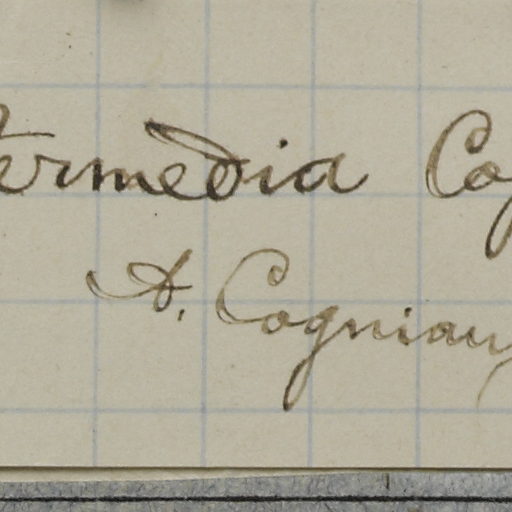 termedia Cog
A. Cogniaux